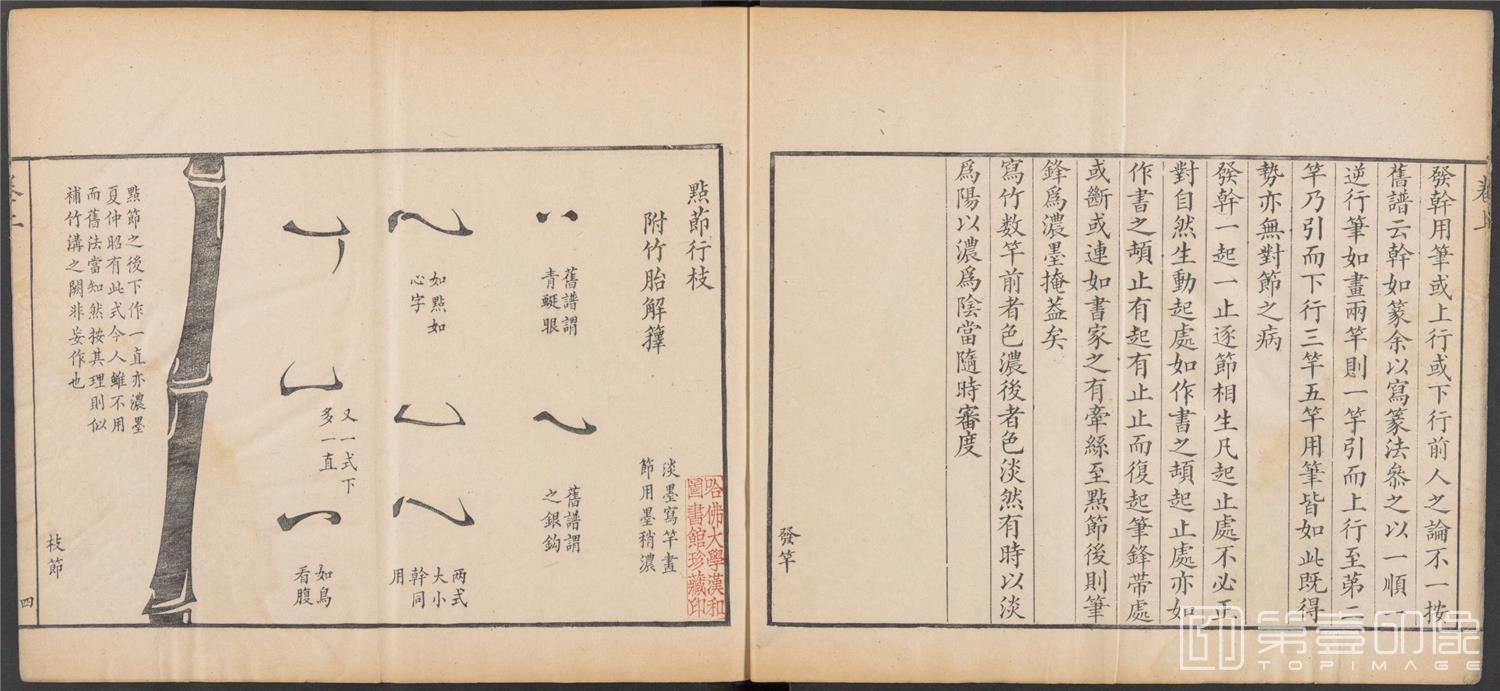 卷上
發幹用筆或上行或下行前人之論不一按
舊譜云幹如篆余以寫篆法叅之以一順一
逆行筆如畫兩竿則一竿引而上行至第二
竿乃引而下行三竿五竿用筆皆如此既得
勢亦無對節之病
發幹一起一止逐節相生凡起止處不必正
對自然生動起處如作書之頓起止處亦如
作書之頓止有起有止止而復起筆鋒帶處
或斷或連如書家之有牽絲至點節後則筆
鋒爲濃墨掩葢矣
寫竹数竿前者色濃後者色淡然有時以淡
爲陽以濃爲陰當隨時審度
發竿
點節行枝
附竹胎解籜
淡墨寫竿畫
節用墨稍濃
哈佛大學漢和
圖書館珍藏印
舊譜謂
青蜓眼
舊譜謂
之銀鈎
如點如
心字
兩式
大小
幹同
用
又一式下
多一直
如鳥
看腹
點節之後下作一直亦濃墨
夏仲昭有此式今人雖不用
而舊法當知然按其理則似
補竹溝之闕非妄作也
枝節
四
第壹印像
TOPIMAGE